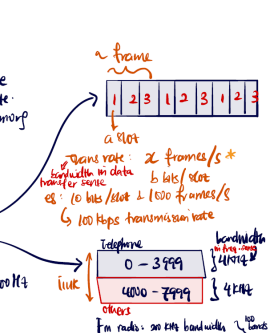 a frame
1 2 3 1 2 3 1 2 3
a slot
Trans rate: x frames/s *
bandwidth in data transfer sense
b bits/slot
eg: 10 bits/slot & 1000 frames/s
↳ 100 kbps transmission rate
Telephone
bandwidth
in freq. sense
0 - 3999
} 4kHz
4000 - 7999
} 4 kHz
others
Fm radio: 200 kHz bandwidth
100
bands